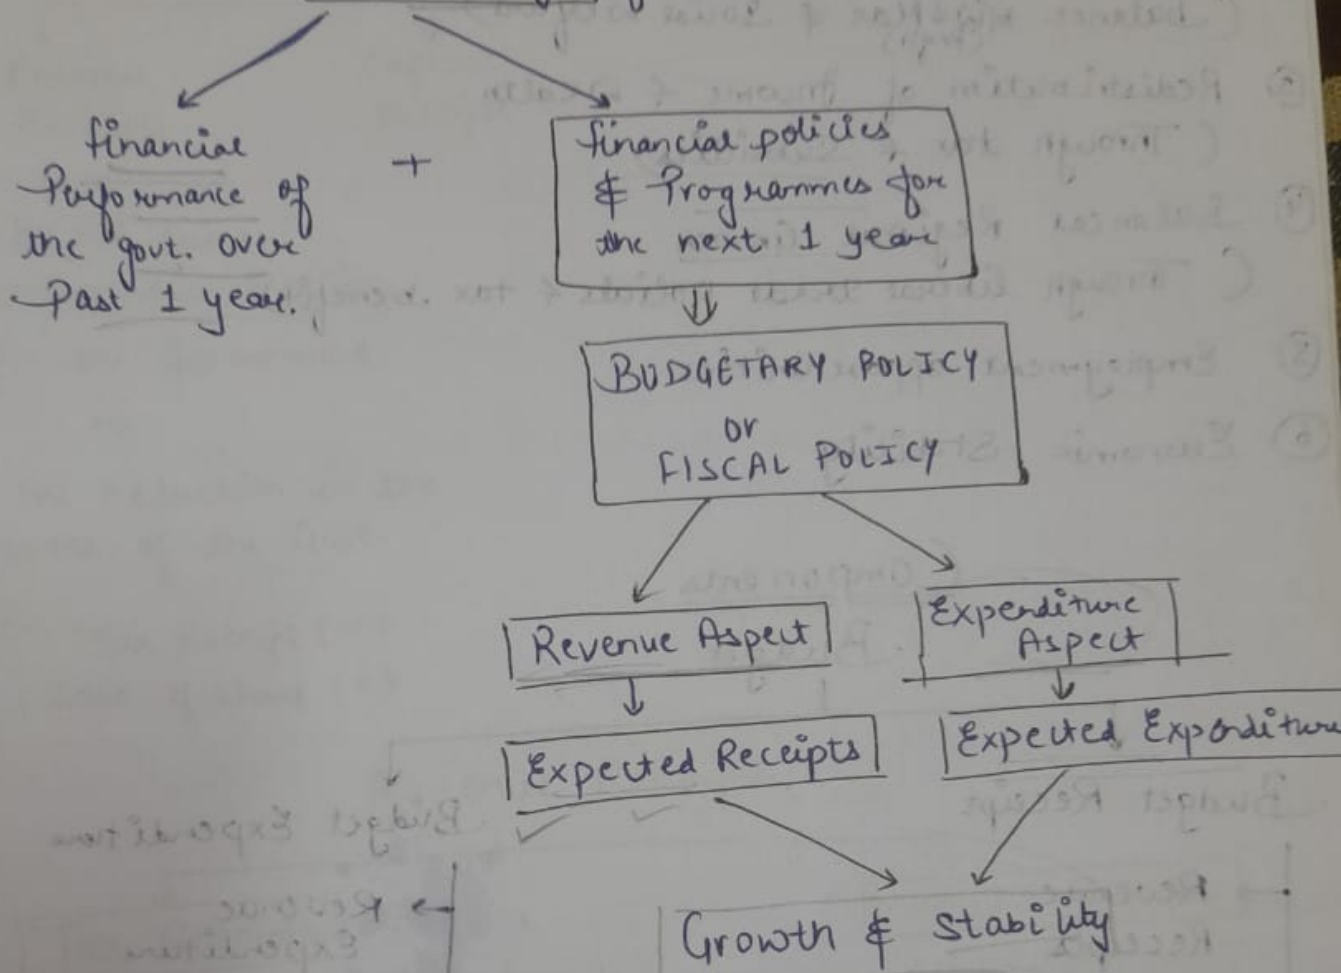 financial
Performance of
the govt. over
Past 1 year.
+
financial policies
& Programmes for
the next 1 year
BUDGETARY POLICY
or
FISCAL POLICY
Revenue Aspect
Expenditure
Aspect
Expected Receipts
Expected Expenditure
Growth & Stability